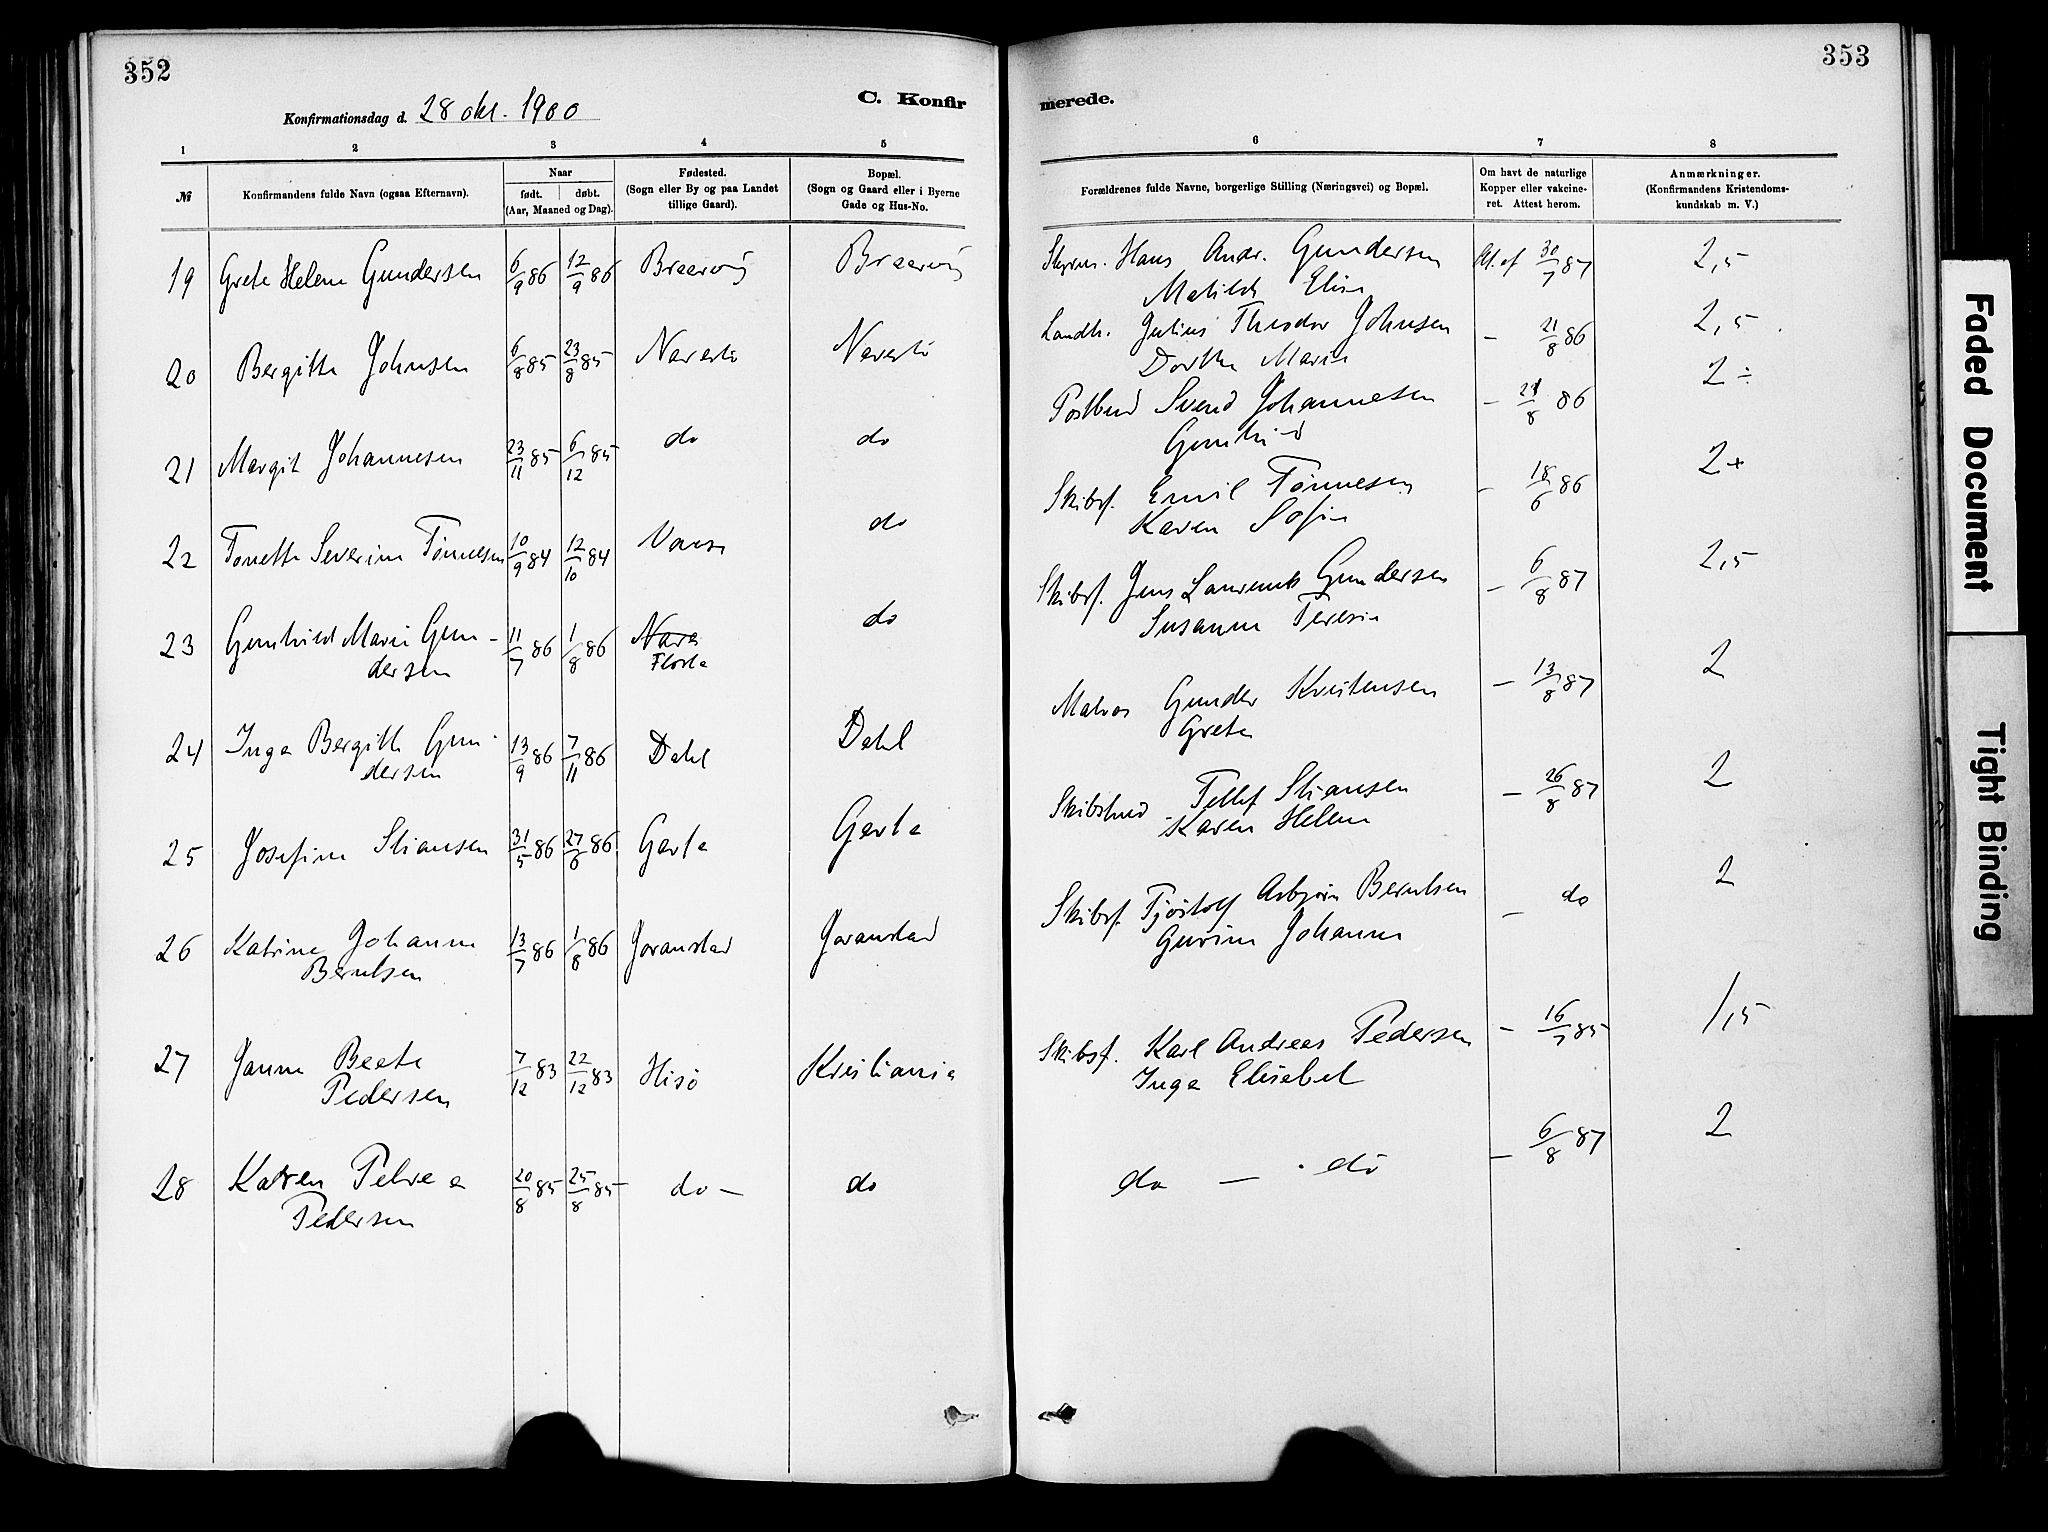 352
353
C. Konfir
merede.
Konfirmationsdag d. 28 okt. 1900
1 2 3 4 5
6 7 8
№
Konfirmandens fulde Navn (ogsaa Efternavn).
Naar
født. døbt.
(Aar, Maaned og Dag).
Fødested.
(Sogn eller By og paa Landet
tillige Gaard).
Bopæl.
(Sogn og Gaard eller i Byerne
Gade og Hus-No.
Forældrenes fulde Navne, borgerlige Stilling (Næringsvei) og Bopæl.
Om havt de naturlige
Kopper eller vakcine-
ret. Attest herom.
Anmærkninger.
(Konfirmandens Kristendoms-
kundskab m. V.)
19 Grete Helene Gundersen 6/9 86 12/9 86 Hans Andr. Gundersen 30/7 87 2,5
Matilde Elise
20 Bergitte Johnsen 6/8 85 23/8 85 Narestø Narestø Landh. Julius Theodor Johnsen - 21/8 86 2,5
Dorthe Marie
21 Margit Johannesen 23/11 85 6/12 85 do do Postbud Svend Johannesen - 21/8 86 2÷
Gunhild
22 Tonette Severine Tønnesen 10/9 84 12/10 84 do Skibsf. Emil Tønnesen - 18/6 86 2+
Karen Sofie
23 Gunhild Marie Gun-
dersen 11/7 86 1/8 86 Flosta do Skibsf. Jens Laurents Gundersen - 6/8 87 2,5
Susanne Teresie
24 Inga Bergitte Gun-
dersen 13/9 86 7/11 86 Dahl Dahl Matros Gunder Kristensen - 13/8 87 2
Grete
25 Josefine Stiansen 31/5 86 27/6 86 Garta Garta Tellef Stiansen - 26/8 87 2
Karen Helene
26 Katrine Johanne
Berntsen 13/7 86 1/8 86 Joranstad Joranstad Skibsf. Tjøstolf Asbjørn Berntsen - do 2
Gurine Johanne
27 Janna Beate
Pedersen 7/12 83 22/12 83 Hisø Kristiania Skibsf. Karl Andreas Pedersen - 16/7 85 1,5
Inga Elisabet
28 Karen Petrea
Pedersen 20/8 85 25/8 85 do - do do - do - 6/8 87 2
Faded Document
Tight Binding